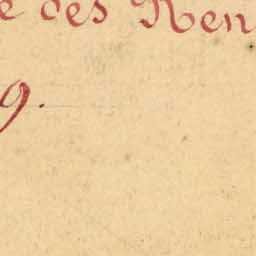 e des Ren
9.